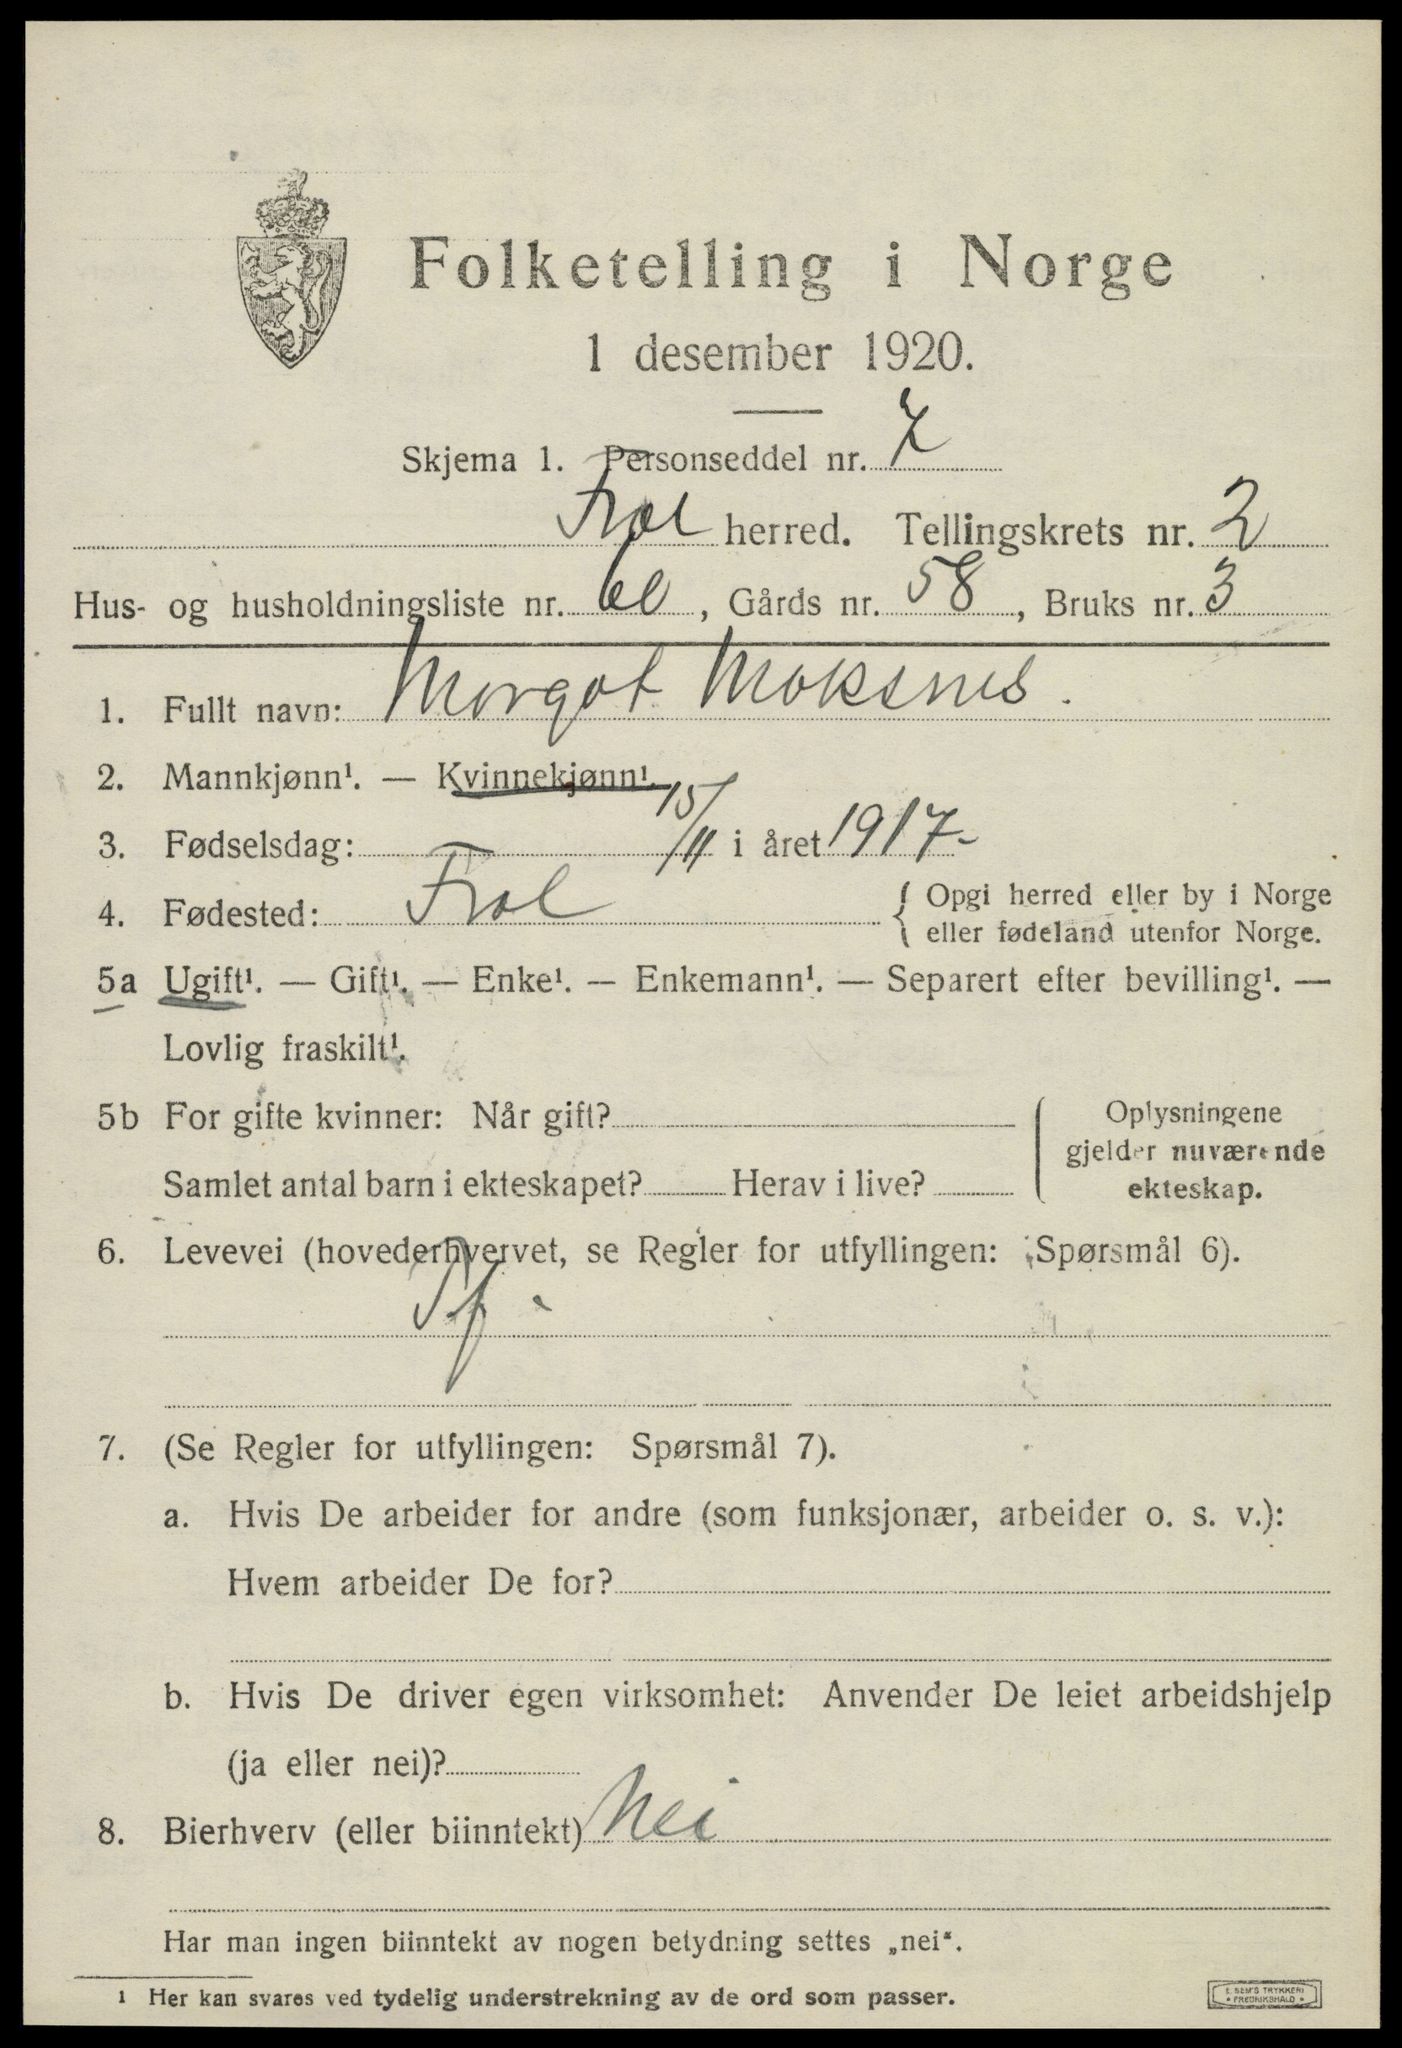 Folketelling i Norge
1 desember 1920.
Skjema 1. Personseddel nr. 7
Frol herred. Tellingskrets nr. 2
Hus- og husholdningsliste nr. 60, Gårds nr. 58, Bruks nr. 3
1. Fullt navn: Margot Moksnes.
2. Mannkjønn¹. — Kvinnekjønn¹.
3. Fødselsdag: 15/11 i året 1917-
4. Fødested: Frol { Opgi herred eller by i Norge
eller fødeland utenfor Norge.
5a Ugift¹. — Gift¹. — Enke¹. — Enkemann¹. — Separert efter bevilling¹. —
Lovlig fraskilt¹.
5b For gifte kvinner: Når gift? { Oplysningene
gjelder nuværende
Samlet antal barn i ekteskapet? Herav i live? ekteskap.
6. Levevei (hovederhvervet, se Regler for utfyllingen: Spørsmål 6).
7. (Se Regler for utfyllingen: Spørsmål 7).
a. Hvis De arbeider for andre (som funksjonær, arbeider o. s. v.):
Hvem arbeider De for?
b. Hvis De driver egen virksomhet: Anvender De leiet arbeidshjelp
(ja eller nei)?
8. Bierhverv (eller biinntekt) Nei
Har man ingen biinntekt av nogen betydning settes „nei“.
1 Her kan svares ved tydelig understrekning av de ord som passer.
E. SEM'S TRYKKERI
• FREDRIKSHALD •